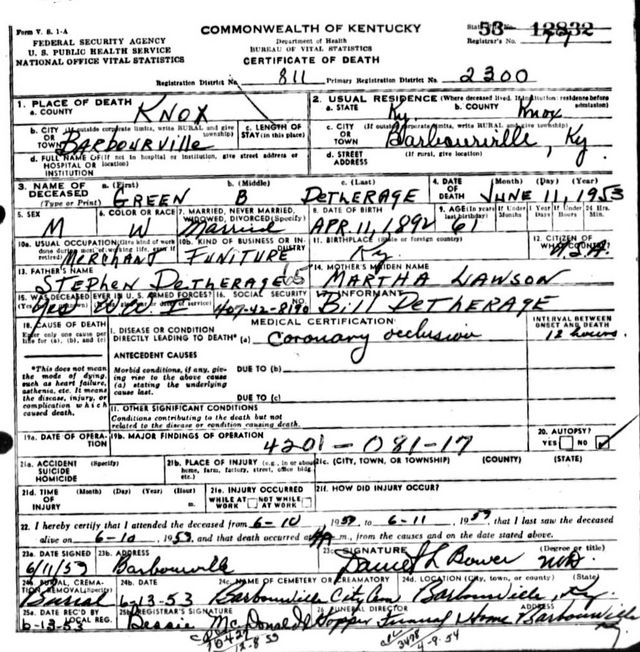 Form V. S. 1-A
COMMONWEALTH OF KENTUCKY
53- 12832
FEDERAL SECURITY AGENCY
U. S. PUBLIC HEALTH SERVICE
NATIONAL OFFICE VITAL STATISTICS
Department of Health
BUREAU OF VITAL STATISTICS
CERTIFICATE OF DEATH
Registrar's No.
Registration District No. 811 Primary Registration District No. 2300
1. PLACE OF DEATH
a. COUNTY KNOX
2. USUAL RESIDENCE (Where deceased lived. If institution: residence before admission)
a. STATE Ky. b. COUNTY Knox
b. CITY (If outside corporate limits, write RURAL and give township) OR TOWN BARBOURVILLE
c. LENGTH OF STAY (in this place)
c. CITY (If outside corporate limits, write RURAL and give township) OR TOWN Barbourville, Ky.
d. FULL NAME OF (If not in hospital or institution, give street address or HOSPITAL OR location) INSTITUTION
d. STREET ADDRESS (If rural, give location)
3. NAME OF DECEASED (Type or Print) a. (First) GREEN b. (Middle) B c. (Last) DETHERAGE
4. DATE OF DEATH (Month) (Day) (Year) JUNE 11, 1953
5. SEX M
6. COLOR OR RACE W
7. MARRIED, NEVER MARRIED, WIDOWED, DIVORCED (Specify) Married
8. DATE OF BIRTH APR. 11, 1892
9. AGE (In years last birthday) 61
10a. USUAL OCCUPATION (Give kind of work done during most of working life, even if retired) MERCHANT
10b. KIND OF BUSINESS OR INDUSTRY FUNITURE
11. BIRTHPLACE (State or foreign country) Ky.
12. CITIZEN OF WHAT COUNTRY? U.S.A.
13. FATHER'S NAME STEPHEN DETHERAGE
14. MOTHER'S MAIDEN NAME MARTHA LAWSON
15. WAS DECEASED EVER IN U. S. ARMED FORCES? Yes WW I
16. SOCIAL SECURITY 407-42-8190
17. INFORMANT Bill DETHERAGE
18. CAUSE OF DEATH
Enter only one cause per line for (a), (b), and (c)
MEDICAL CERTIFICATION
INTERVAL BETWEEN ONSET AND DEATH
I. DISEASE OR CONDITION DIRECTLY LEADING TO DEATH* (a) Coronary occlusion 12 hours
*This does not mean the mode of dying, such as heart failure, asthenia, etc. It means the disease, injury, or complication which caused death.
ANTECEDENT CAUSES
Morbid conditions, if any, giving rise to the above cause (a) stating the underlying cause last.
DUE TO (b)
DUE TO (c)
II. OTHER SIGNIFICANT CONDITIONS
Conditions contributing to the death but not related to the disease or condition causing death.
19a. DATE OF OPERATION
19b. MAJOR FINDINGS OF OPERATION
4201-081-17
20. AUTOPSY? YES NO
21a. ACCIDENT SUICIDE HOMICIDE (Specify)
21b. PLACE OF INJURY (e.g., in or about home, farm, factory, street, office bldg., etc.)
21c. (CITY, TOWN, OR TOWNSHIP) (COUNTY) (STATE)
21d. TIME OF INJURY (Month) (Day) (Year) (Hour) m.
21e. INJURY OCCURRED WHILE AT WORK NOT WHILE AT WORK
21f. HOW DID INJURY OCCUR?
22. I hereby certify that I attended the deceased from 6-10 1953, to 6-11, 1953, that I last saw the deceased
alive on 6-10, 1953, and that death occurred at m., from the causes and on the date stated above.
23a. DATE SIGNED 6/11/53
23b. ADDRESS Barbourville
23c. SIGNATURE (Degree or title) Daniel L Bower MD.
24a. BURIAL, CREMATION, REMOVAL (Specify) Burial
24b. DATE 6-13-53
24c. NAME OF CEMETERY OR CREAMATORY Barbourville City Cem
24d. LOCATION (City, town, or county) (State) Barbourville, Ky.
25a. DATE REC'D BY LOCAL REG. 6-13-53
25b. REGISTRAR'S SIGNATURE Bessie McDonald
26. FUNERAL DIRECTOR ADDRESS Hopper Funeral Home Barbourville Ky.
10427
12-8-53
3478
4-9-54